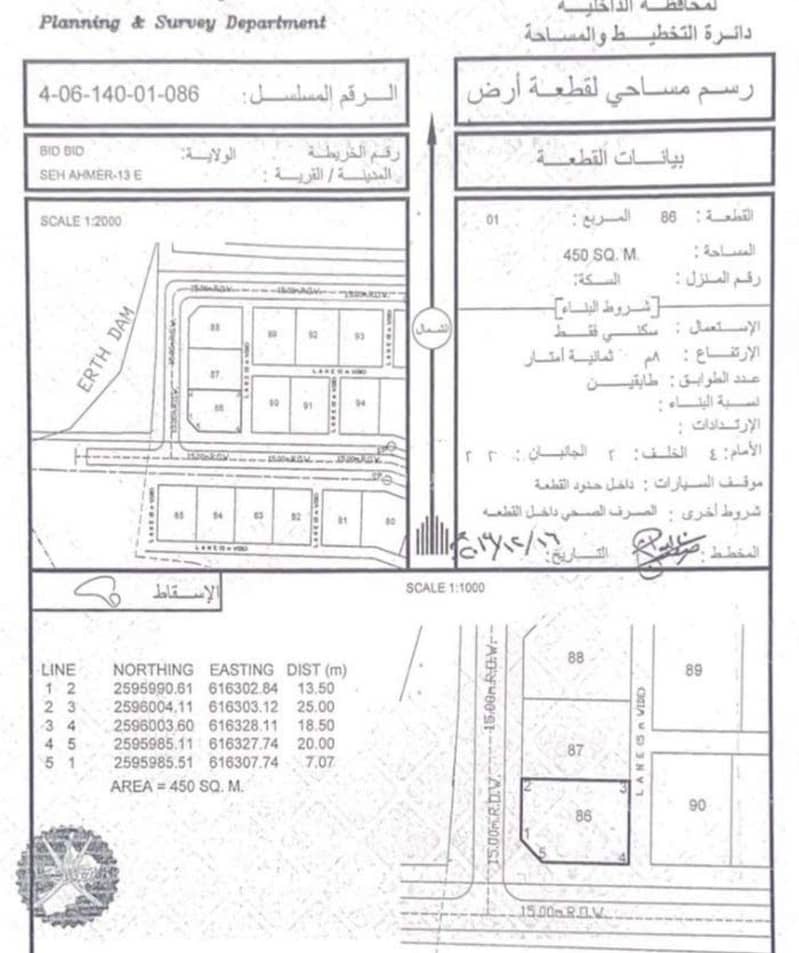 Planning & Survey Department
لمحافظة الداخلية
دائرة التخطيط والمساحة
الرقم المسلسل: 4-06-140-01-086
رسم مساحي لقطعة أرض
رقم الخريطة
الولاية: BID BID
المدينة / القرية : SEH AHMER-13 E
بيانات القطعة
SCALE 1:2000
ERTH DAM
15.00m R.O.W.
15.00m R.O.W.
15.00m R.O.W.
88
89
92
93
LANE (5 m WIDE)
87
86
90
91
94
15.00m R.O.W.
15.00m R.O.W.
15.00m R.O.W.
85
84
83
82
81
80
LANE (5 m WIDE)
الشمال
القطعة : 86 المربع : 01
المساحة : 450 SQ. M.
رقم المنزل : السكة:
شروط البناء
الإستعمال : سكني فقط
الإرتفاع : ٨م ثمانية أمتار
عدد الطوابق : طابقين
نسبة البناء :
الإرتدادات :
الأمام: ٤ الخلف: ٢ الجانبان : ٢ ٢
موقف السيارات : داخل حدود القطعة
شروط أخرى : الصرف الصحي داخل القطعه
المخطط :
التاريخ:
الإسقاط
SCALE 1:1000
LINE NORTHING EASTING DIST (m)
1 2 2595990.61 616302.84 13.50
2 3 2596004.11 616303.12 25.00
3 4 2596003.60 616328.11 18.50
4 5 2595985.11 616327.74 20.00
5 1 2595985.51 616307.74 7.07
AREA = 450 SQ. M.
15.00m R.O.W.
15.00m R.O.W.
88
89
LANE (5 m WIDE)
87
2 3
86
90
1
5 4
15.00m R.O.W.